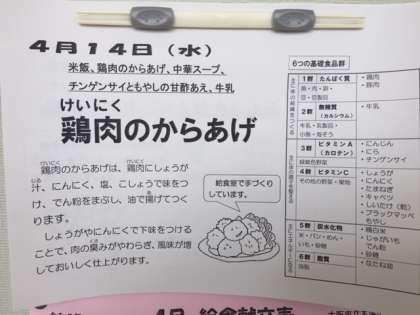 4月14日（水）
米飯、鶏肉のからあげ、中華スープ、
チンゲンサイともやしの甘酢あえ、牛乳
けいにく
鶏肉のからあげ
鶏肉のからあげは、鶏肉にしょうが
汁、にんにく、塩、こしょうで味をつ
け、でん粉をまぶし、油で揚げてつく
ります。
しょうがやにんにくで下味をつける
ことで、肉の臭みがやわらぎ、風味が増
しておいしく仕上がります。
給食室で手づくり
しています。
6つの基礎食品群
1群 たんぱく質
魚・肉・卵・
豆・豆製品
・鶏肉
・豚肉
2群 無機質
（カルシウム）
牛乳・乳製品・
小魚・海そう
・牛乳
3群 ビタミンA
（カロテン）
緑黄色野菜
・にんじん
・にら
・チンゲンサイ
4群 ビタミンC
その他の野菜・果物
・しょうが
・にんにく
・たまねぎ
・キャベツ
・しいたけ（乾）
・ブラックマッペ
もやし
5群 炭水化物
米・パン・めん・
いも・砂糖
・精白米
・じゃがいも
・でん粉
・砂糖
6群 脂質
油脂
・なたね油
4月 給食献立表